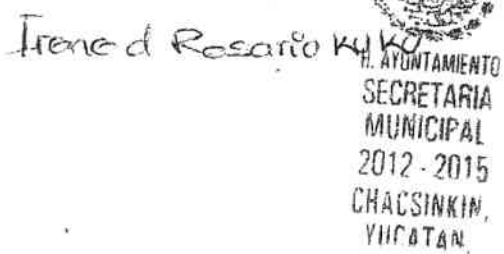 Irene d Rosario Ku Ku
H. AYUNTAMIENTO
SECRETARIA
MUNICIPAL
2012 - 2015
CHACSINKIN,
YUCATAN.